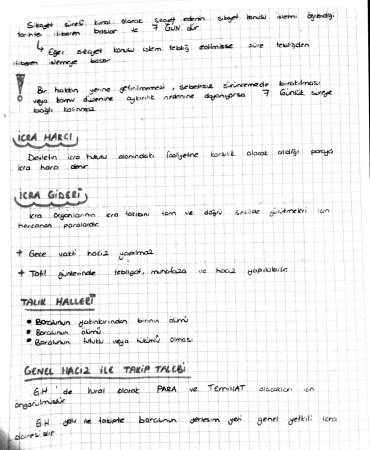 Şikayet süresi kural olarak şikayet edenin şikayet konusu işlemi öğrendiği
tarihten itibaren başlar ve 7 GÜN dür
↳ Eğer şikayet konusu işlem tebliğ edilmişse süre tebliğden
itibaren işlemeye başlar
! Bir hakkın yerine getirilmemesi, sebepsiz sürüncemede bırakılması
veya kamu düzenine aykırılık nedenine dayanıyorsa 7 Günlük süreye
bağlı kalınmaz
İCRA HARCI
Devletin icra hukuku alanındaki faaliyetine karşılık olarak aldığı paraya
icra harcı denir
İCRA GİDERİ
İcra organlarının icra takibini tam ve doğru şekilde yürütmeleri için
harcanan paralardır
+ Gece vakti haciz yapılmaz
+ Tatil günlerinde tebligat, muhafaza ve haciz yapılabilir
TALİK HALLERİ
• Borçlunun yakınlarından birinin ölümü
• Borçlunun ölümü
• Borçlunun tutuklu veya hükümlü olması
GENEL HACİZ İLE TAKİP TALEBİ
G.H 'de kural olarak PARA ve TEMİNAT alacakları için
öngörülmüştür
G.H yolu ile takipte borçlunun yerleşim yeri genel yetkili icra
dairesidir